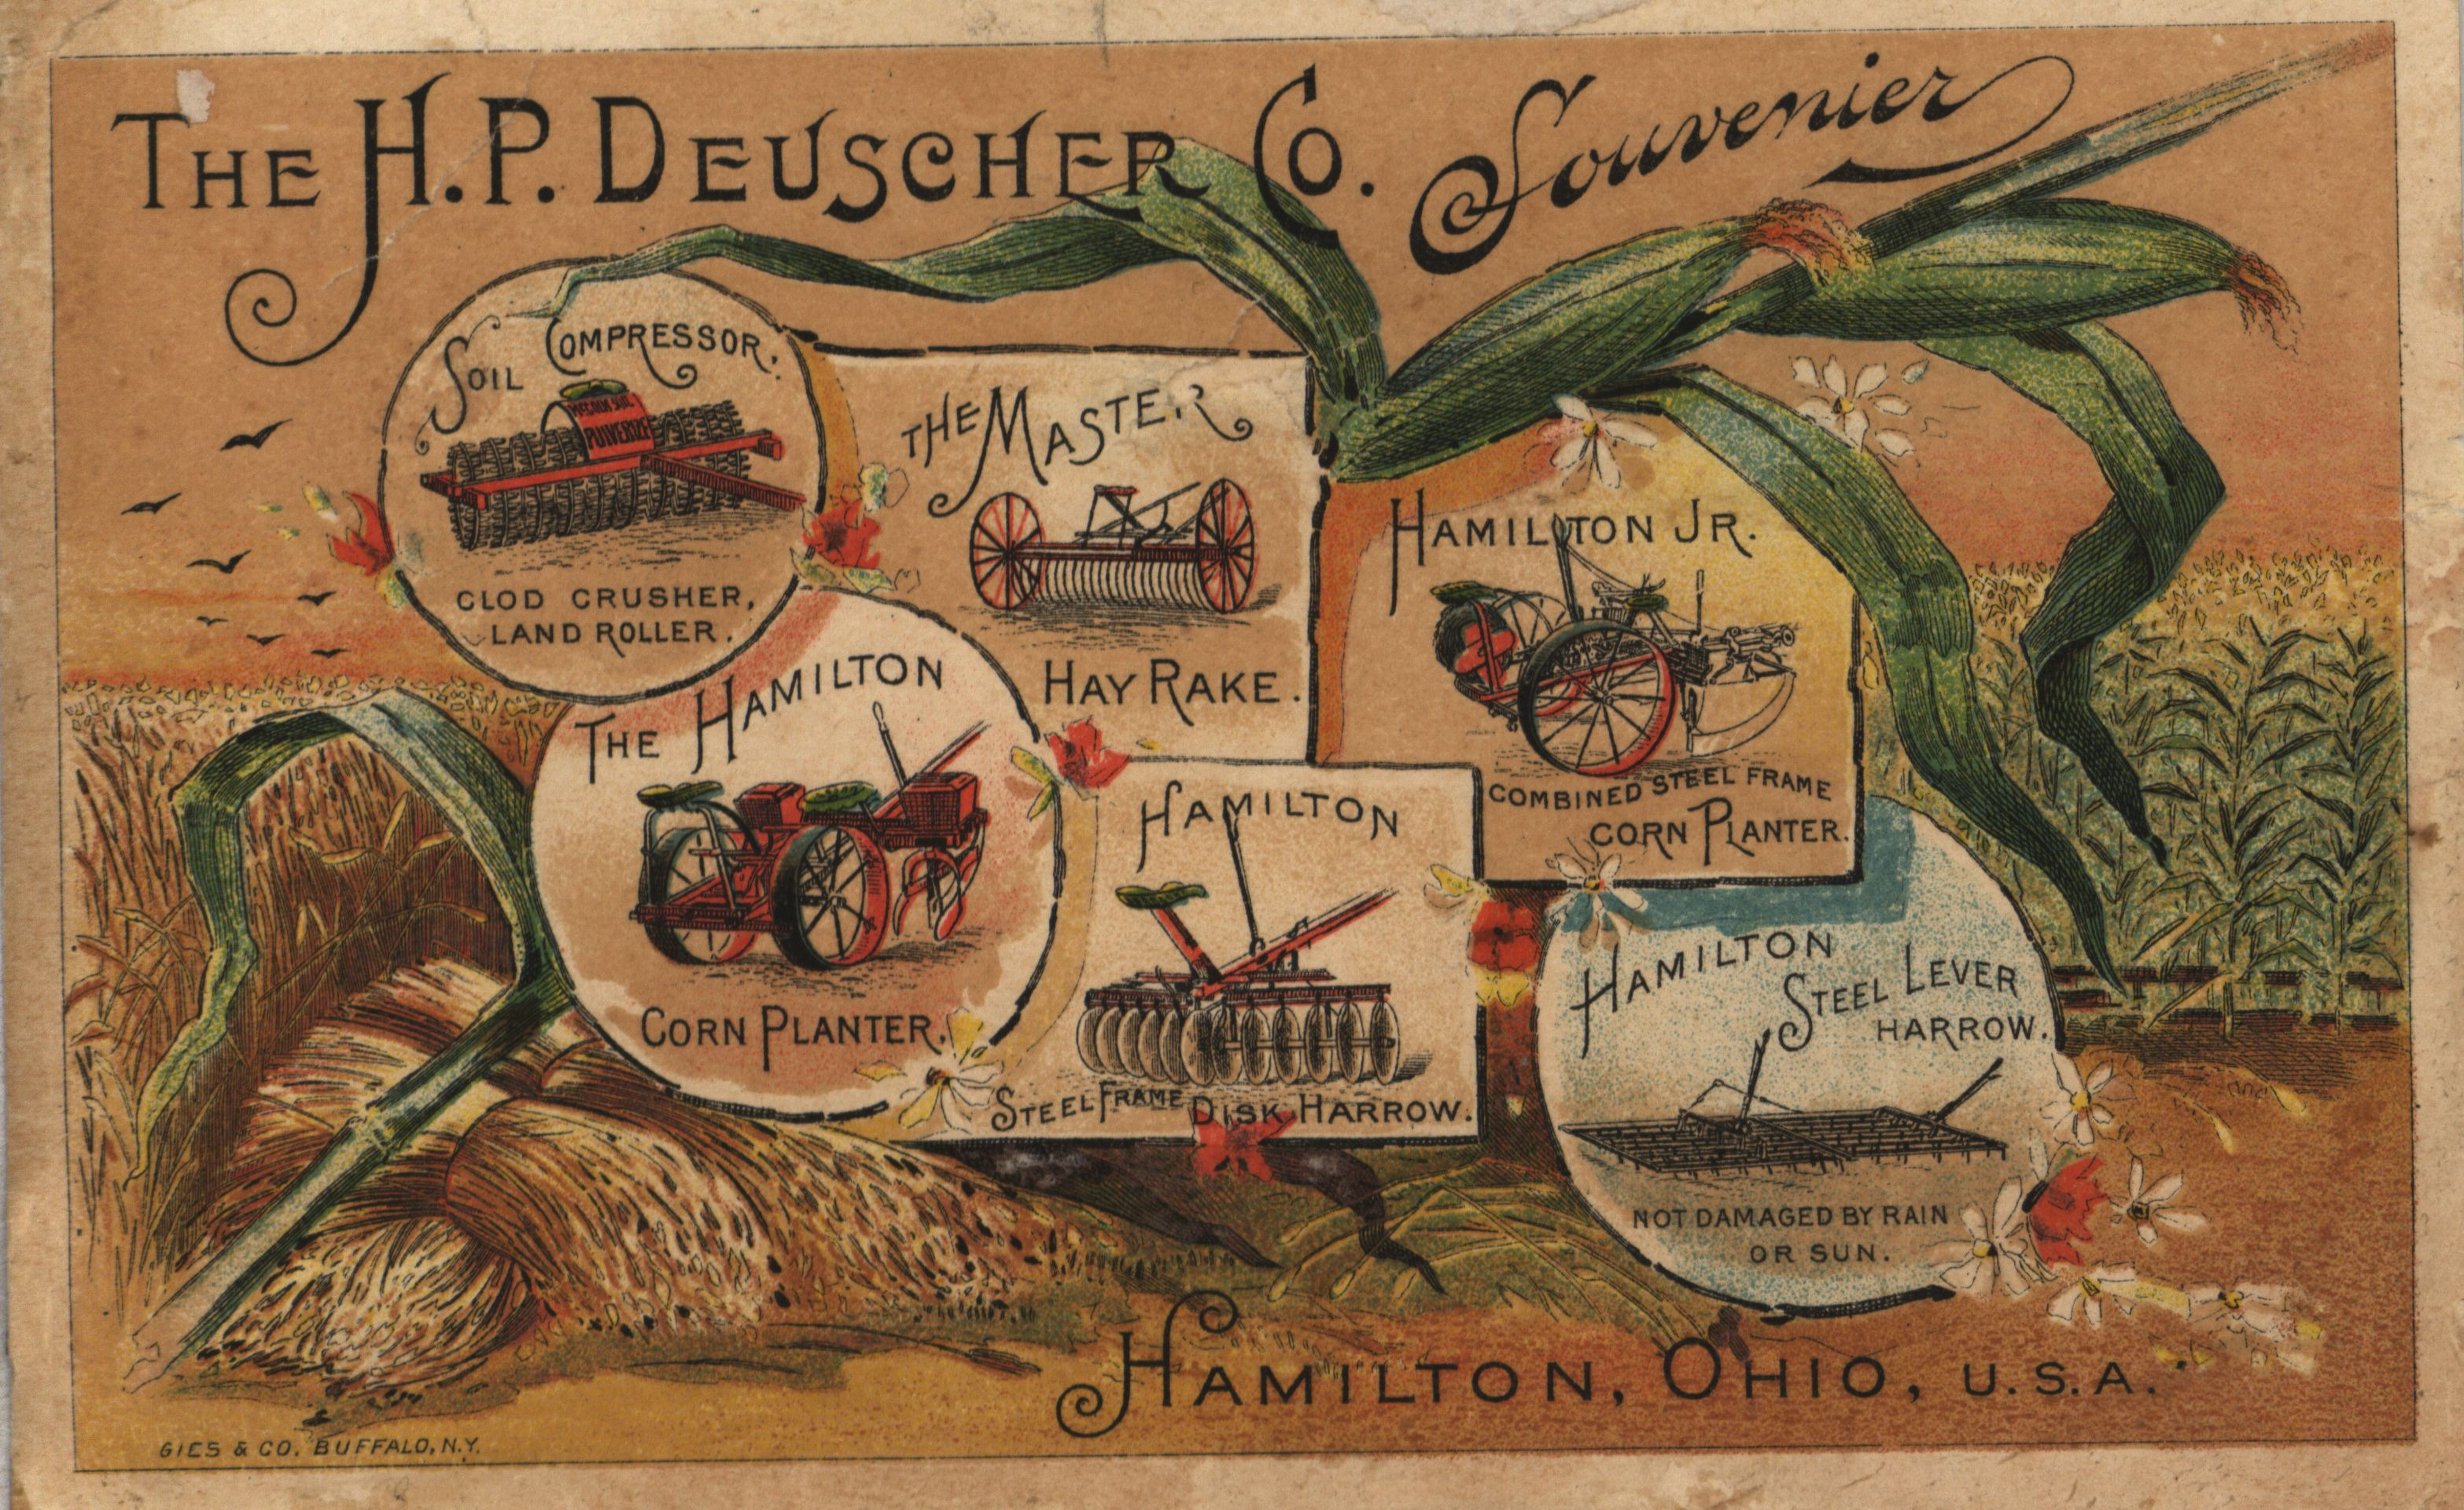 THE H.P. DEUSCHER CO. Souvenier
SOIL COMPRESSOR.
PULVERIZE
CLOD CRUSHER,
LAND ROLLER.
THE MASTER
HAY RAKE.
HAMILTON JR.
COMBINED STEEL FRAME
CORN PLANTER.
THE HAMILTON
CORN PLANTER.
HAMILTON
STEEL FRAME DISK HARROW.
HAMILTON
STEEL LEVER
HARROW.
NOT DAMAGED BY RAIN
OR SUN.
HAMILTON, OHIO, U.S.A.
GIES & CO. BUFFALO, N.Y.